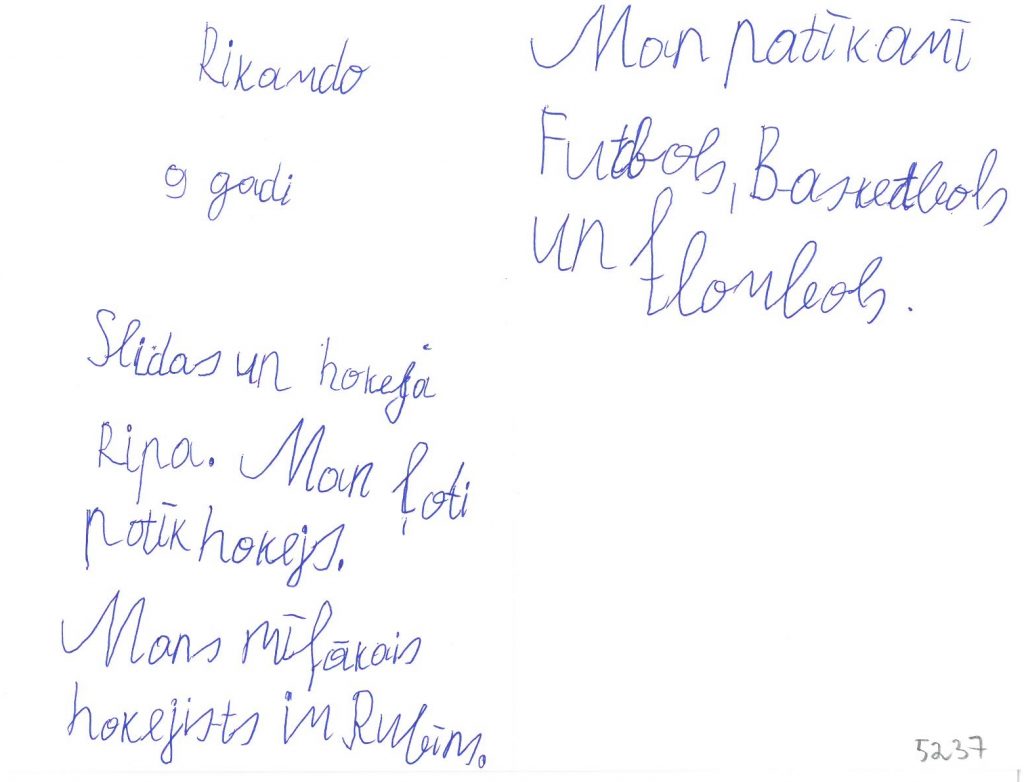 Rikardo
9 gadi
Slidas un hokeja
Ripa. Man ļoti
patīk hokejs.
Mans mīļākais
hokejists ir Rubīns.
Man patīk arī
Futbols, Basketbols
un florbols.
5237